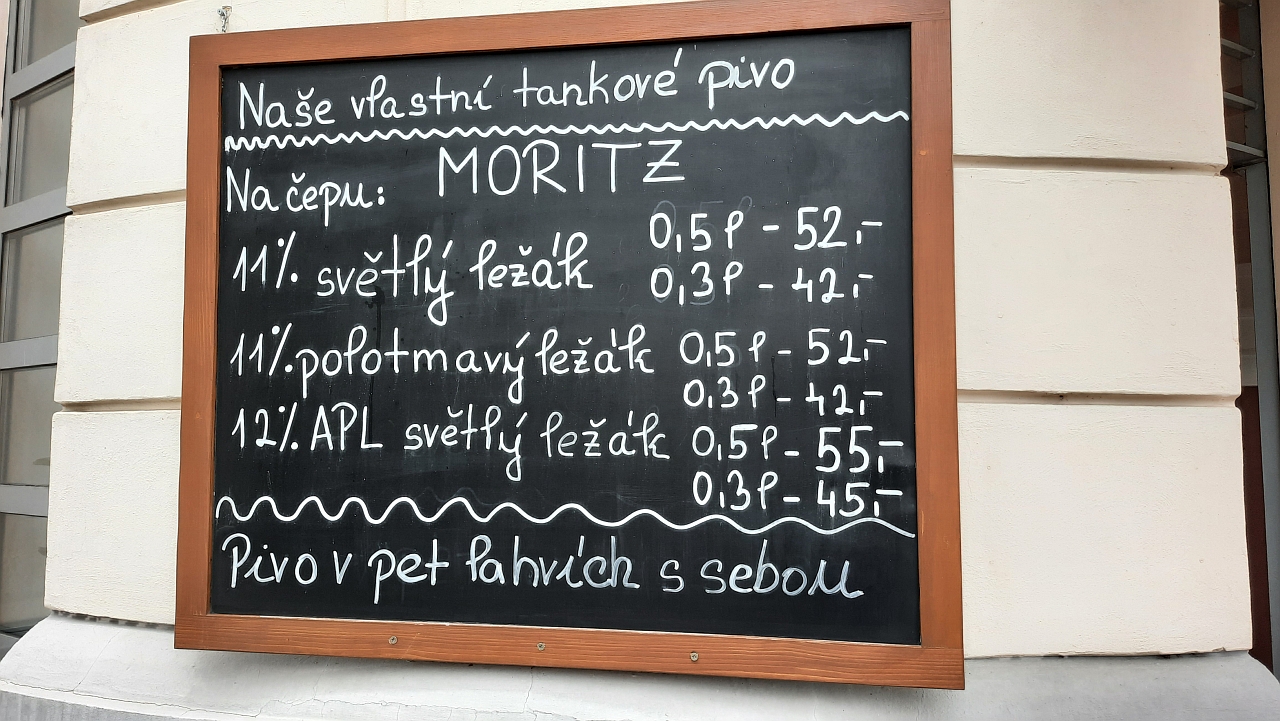 Naše vlastní tankové pivo
MORITZ
Na čepu:
11% světlý ležák 0,5l - 52,-
0,3l - 42,-
11% polotmavý ležák 0,5l - 52,-
0,3l - 42,-
12% APL světlý ležák 0,5l - 55,-
0,3l - 45,-
Pivo v pet lahvích s sebou